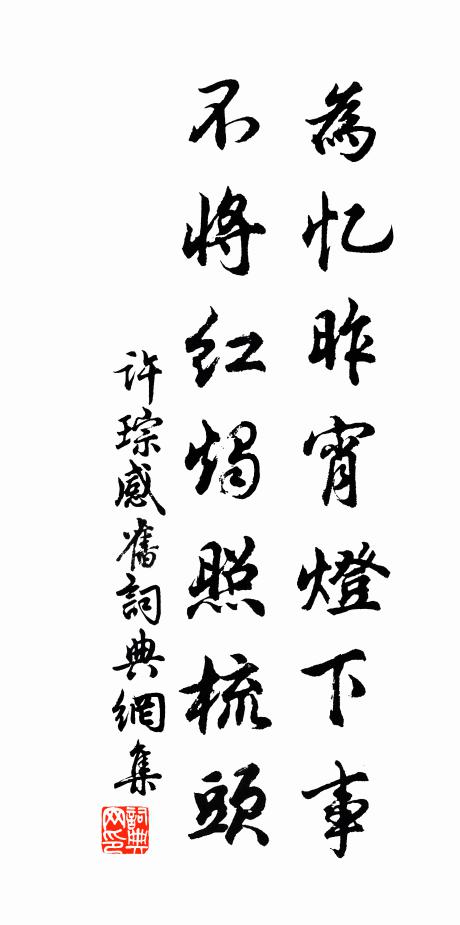 為忆昨宵燈下事
不将红烛照梳頭
许琮感舊詞典網集
詞典网印